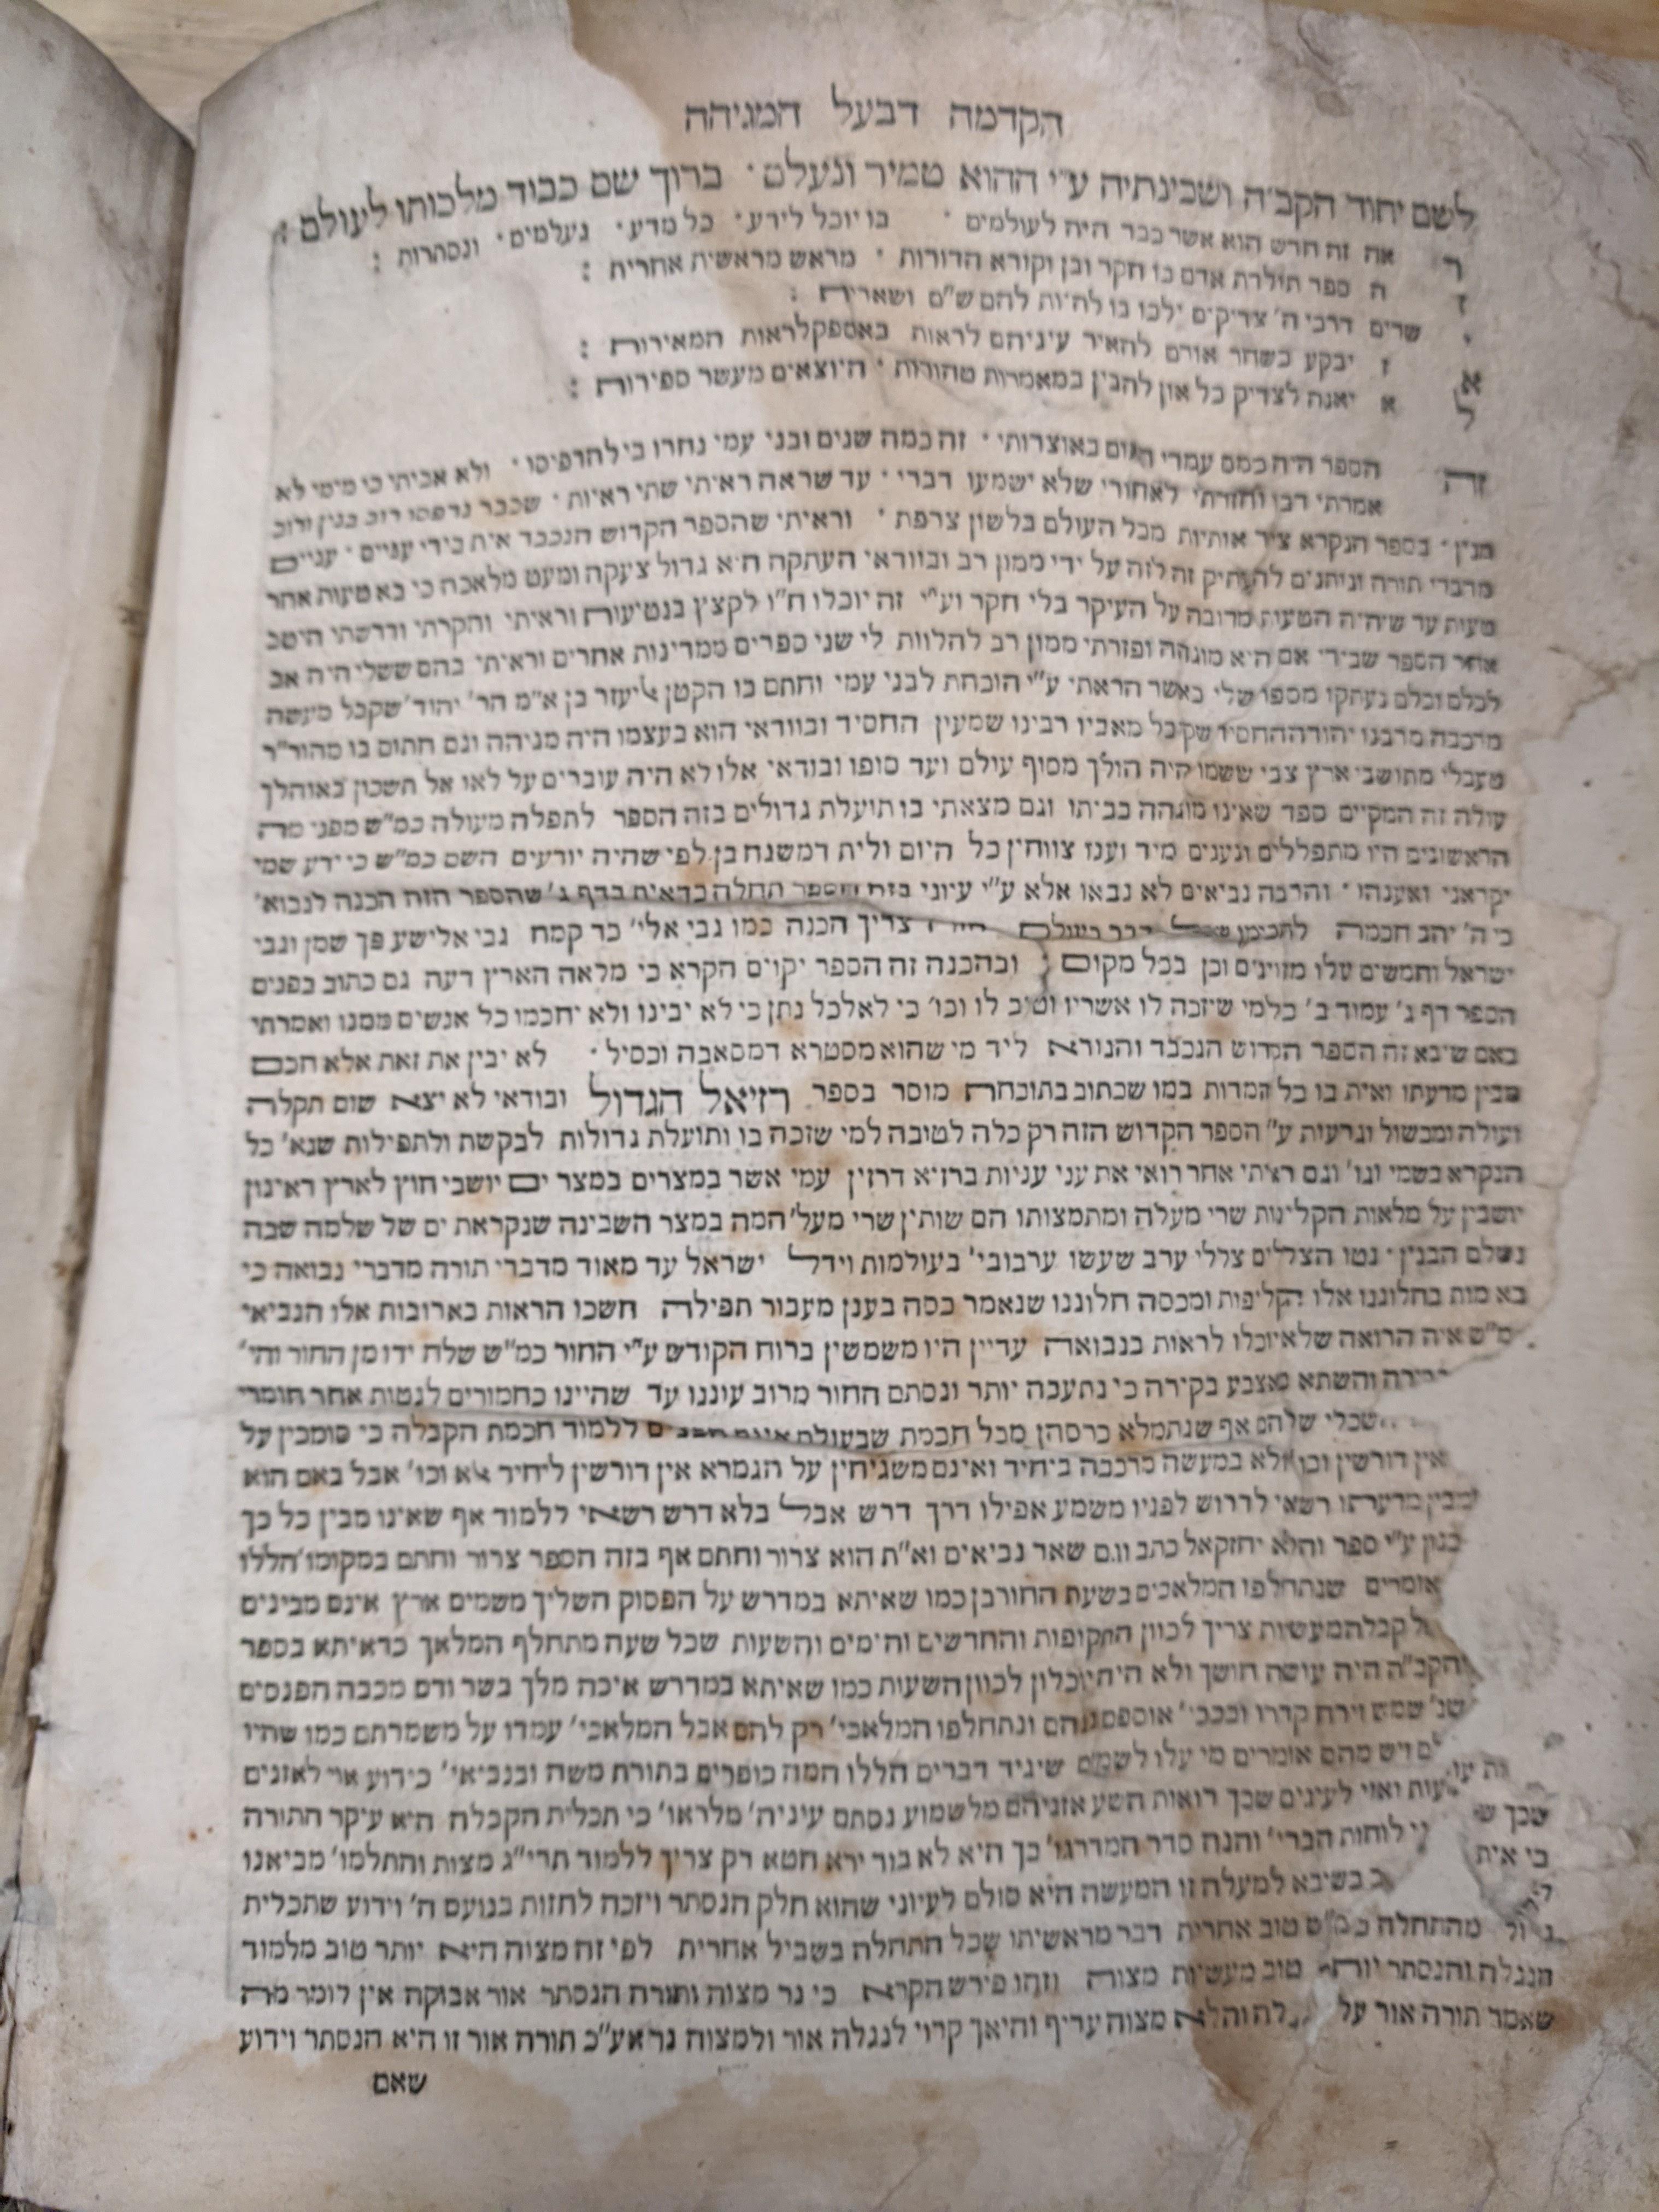 הקדמה דבעל המגיהה
לשם יחוד הקב״ה ושכינתיה ע״י ההוא טמיר ונעלם · ברוך שם כבוד מלכותו לעולם :
ר אה זה חדש הוא אשר כבר היה לעולמים · בו יוכל לידע · כל מדע · נעלמים · ונסתרות :
ז ה ספר תולדת אדם בו חקר ובן וקורא הדורות · מראש מראשית אחרית :
י שרים דרכי ה׳ צדיקים ילכו בו להיות להם ש״ם ושארית :
א ז יבקע כשחר אורם להאיר עיניהם לראות באספקלראות המאירות :
ל א יאנה לצדיק כל און להבין במאמרות טהורות · היוצאים מעשר ספירות :
זה הספר היה כמס עמדי באוצרותי · זה כמה שנים ובני עמי נחרו בי להדפיסו · ולא אביתי כי מימי לא
אמרתי דבר וחזרתי לאחורי שלא ישמעו דברי · עד שראה ראיתי שתי ראיות · שכבר נדפסו רוב בנין ורוב
מנין · בספר הנקרא ציר אותיות מכל העולם בלשון צרפת · וראיתי שהספר הקדוש הנכבד אית בידי עניים · עניים
מדברי תורה וניתנים להעתיק זה לזה על ידי ממון רב ובוודאי העתקה היא גדול צעקה ומעט מלאכה כי בא טעות אחר
טעות עד שיהיה הטעות מרובה על העיקר בלי חקר וע״י זה יוכלו ח״ו לקצץ בנטיעות וראיתי וחקרתי ודרשתי היטב
אחר הספר שבידי אם היא מוגהה ופזרתי ממון רב להלוות לי שני ספרים ממדינות אחרים וראיתי בהם ששלי היה אב
לכלם וכלם נעתקו מספר שלי כאשר הראתי ע״י הוכחת לבני עמי וחתם בו הקטן אליעזר בן א״מ הר׳ יהוד׳ שקבל מעשה
מרכבה מרבנו יהודה החסיד שקבל מאביו רבינו שמעין החסיד ובוודאי הוא בעצמו היה מגיהה וגם חתום בו מהור״ר
טעבלי מתושבי ארץ צבי ששמו היה הולך מסוף עולם ועד סופו ובודאי אלו לא היה עוברים על לאו אל תשכון באוהלך
עולה זה המקיים ספר שאינו מוגהה בביתו וגם מצאתי בו תועלת גדולים בזה הספר לתפלה מעולה כמ״ש מפני מה
הראשונים היו מתפללים ונענים מיד וענו צווחין כל היום ולית דמשגח בן לפי שהיה יודעים השם כמ״ש כי ידע שמי
יקראני ואענהו · והרבה נביאים לא נבאו אלא ע״י עיוני בזה הספר תחלה כדאית בדף ג׳ שהספר הזה הכנה לנבוא׳
כי ה׳ יהב חכמה לחכימין דבר בעולם צריך הכנה כמו גבי אלי׳ כד קמח גבי אלישע פך שמן וגבי
ישראל וחמשים עלו מזוינים וכן בכל מקום ; ובהכנה זה הספר יקוים הקרא כי מלאה הארץ דעה גם כתוב בפנים
הספר דף ג׳ עמוד ב׳ כלמי שיזכה לו אשריו וטוב לו וכו׳ כי לאלכל נתן כי לא יבינו ולא יחכמו כל אנשים ממנו ואמרתי
באם שיבא זה הספר הקדוש הנכבד והנורא ליד מי שהוא מסטרא דמסאבה וכסיל · לא יבין את זאת אלא חכם
מבין מדעתו ואית בו כל המדות כמו שכתוב בתוכחת מוסר בספר רזיאל הגדול ובודאי לא יצא שום תקלה
ועולה ומכשול וגרעות ע״י הספר הקדוש הזה רק כלה לטובה למי שזכה בו ותועלת גדולות לבקשת ולתפילות שנא׳ כל
הנקרא בשמי וגו׳ וגם ראיתי אחר רואי את עני עניות ברזיא דרזין עמי אשר במצרים במצר ים יושבי חוץ לארץ דאינון
יושבין על מלאות הקליפות שרי מעלה ומתמצותו הם שותין שרי מעל׳ המה במצר השכינה שנקראת ים של שלמה שבה
נשלם הבנין · נטו הצללים צללי ערב שעשו ערבובי׳ בעולמות וידל ישראל עד מאוד מדברי תורה מדברי נבואה כי
בא מות בחלוננו אלו הקליפות ומכסה חלוננו שנאמר כסה בענן מעבור תפילה חשכו הראות בארובות אלו הנביאי
מ״ש איה הרואה שלא יוכלו לראות בנבואה עדיין היו משמשין ברוח הקודש ע״י החור כמ״ש שלח ידו מן החור והי׳
והשתא מאצבע בקירה כי נתעבה יותר ונסתם החור מרוב עוננו עד שהיינו כחמורים לנטות אחר חומרי
שכלי שלהם אף שנתמלא כרסהן מכל חכמת שבעולם אינם ללמוד חכמת הקבלה כי סומכין על
אין דורשין וכו׳ ולא במעשה מרכבה ביחיד ואינם משגיחין על הגמרא אין דורשין ליחיד אלא וכו׳ אבל באם הוא
מבין מדעתו רשאי לדרוש לפניו משמע אפילו דרך דרש אבל בלא דרש רשאי ללמוד אף שאינו מבין כל כך
כגון ע״י ספר והלא יחזקאל כתב וגם שאר נביאים וא״ת הוא צרור וחתם אף בזה הספר צרור וחתם במקומו הללו
אומרים שנתחלפו המלאכים בשעת החורבן כמו שאיתא במדרש על הפסוק השליך משמים ארץ אינם מבינים
קבלה מעשיות צריך לכוון התקופות והחדשים והימים והשעות שכל שעה מתחלף המלאך כדאיתא בספר
והקב״ה היה עושה חושך ולא היה יוכלון לכוון השעות כמו שאיתא במדרש איכה מלך בשר ודם מכבה הפנסים
שנ׳ שמש וירח קדרו וככבי׳ אוספם נגהם ונתחלפו המלאכי׳ רק להם אבל המלאכי׳ עמדו על משמרתם כמו שהיו
ויש מהם אומרים מי עלו לשמים שיגיד דברים הללו המה כופרים בתורת משה ובנביאי׳ כידוע אוי לאזנים
שכך ואוי לעינים שכך רואות השע אזניהם מלשמוע נסתם עיניה׳ מלראו׳ כי תכלית הקבלה היא עיקר התורה
כי אית לוחות הברי׳ והנה סדר המדרגו׳ כך היא לא בור ירא חטא רק צריך ללמוד תרי״ג מצות והתלמו׳ מביאנו
בשיבא למעלה זו המעשה היא סולם לעיוני שהוא חלק הנסתר ויזכה לחזות בנועם ה׳ וידוע שתכלית
מהתחלה כמ״ש טוב אחרית דבר מראשיתו שכל התחלה בשביל אחרית לפי זה מצוה היא יותר טוב מלמוד
הנגלה והנסתר יותר טוב מעשיות מצוה וזהו פירש הקרא כי נר מצוה ותורה הנסתר אור אבוקה אין לומר מה
שאמר תורה אור על והלא מצוה עדיף והיאך קרוי לנגלה אור ולמצוה נר אע״כ תורה אור זו היא הנסתר וידוע
שאם